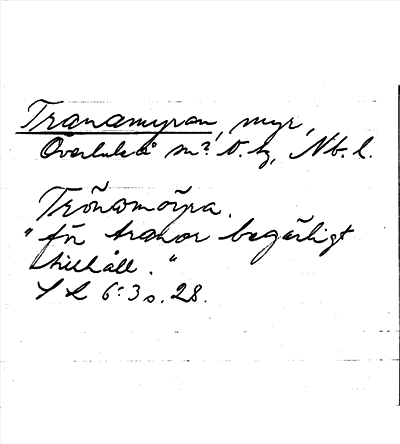 Tranamyran, myr,
Överluleå sn? N. by, Nb. l.
Trönamörra.
"för tranor begärligt
tillhåll."
S L 6:3 s. 28.